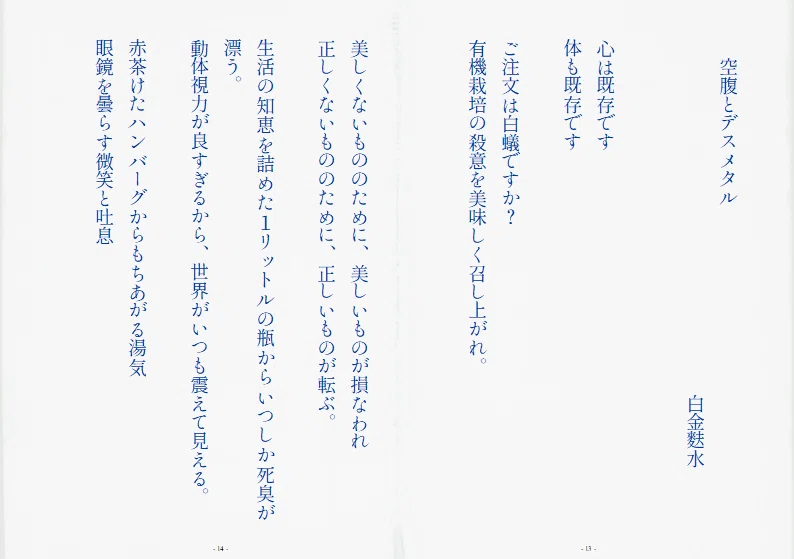 空腹とデスメタル
白金麩水
心は既存です
体も既存です
ご注文は白蟻ですか?
有機栽培の殺意を美味しく召し上がれ。
- 13 -
美しくないもののために、美しいものが損なわれ
正しくないもののために、正しいものが転ぶ。
生活の知恵を詰めた1リットルの瓶からいつしか死臭が
漂う。
動体視力が良すぎるから、世界がいつも震えて見える。
赤茶けたハンバーグからもちあがる湯気
眼鏡を曇らす微笑と吐息
- 14 -